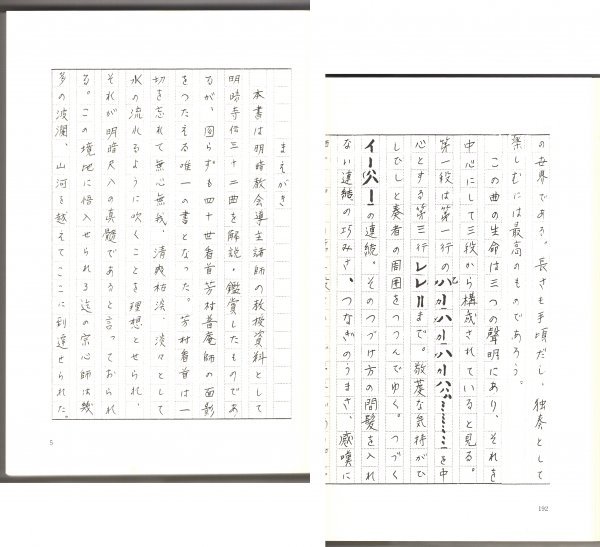 まえがき
本書は明暗教会導主諸師の教授資料として
明暗寺伝三十二曲を解説・鑑賞したものであ
るが、図らずも四十世看首芳村普庵師の面影
をつたえる唯一の書となった。芳村看首は一
切を忘れて無心無我、清爽枯淡、淡々として
水の流れるように吹くことを理想とせられ、
それが明暗尺八の真髄であると言っておられ
る。この境地に悟入せられる迄の宗心師は幾
多の波瀾、山河を越えてここに到達せられた。
5
の世界である。長さも手頃だし、独奏として
楽しむには最高のものであろう。
この曲の生命は三つの聲明にあり、それを
中心にして三段から構成されていると見る。
第一段は第一行のを中
心とする第三行レレまで。敬虔な気持がひ
しひしと奏者の周囲をつつんでゆく。つづく
の連続。そのつづけ方の間髪を入れ
ない連続の巧みさ、つなぎのうまさ、感嘆に
192